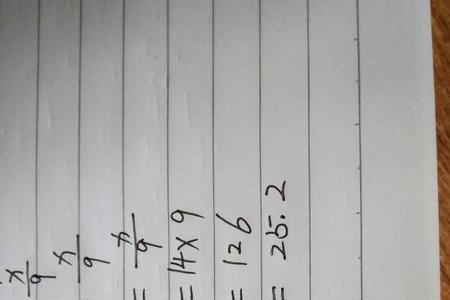 x/9
x/9
= x/9
= 14 x 9
= 126
= 25.2